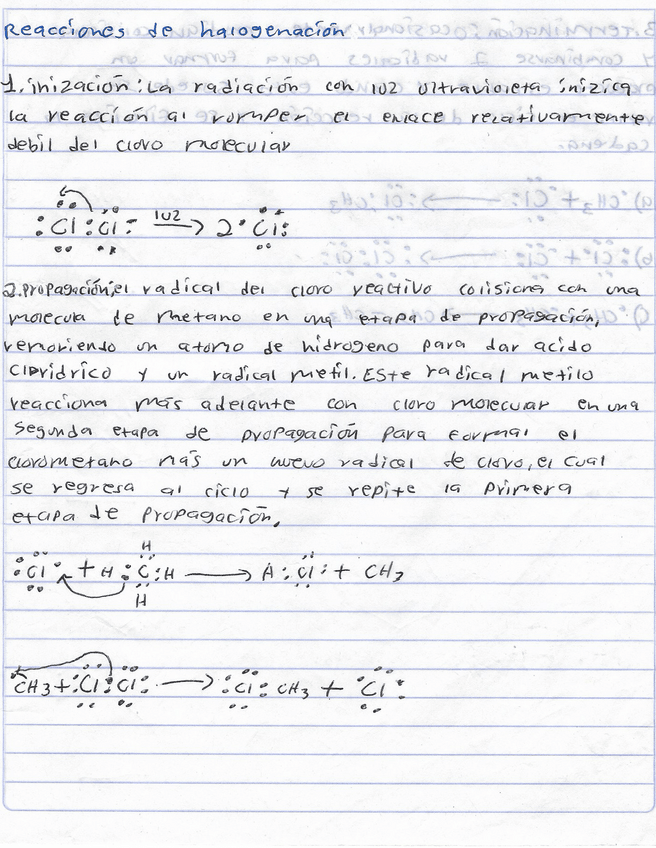 Reacciones de halogenación
1. inización: La radiación con luz ultravioleta inizica
la reacción al romper el enlace relativamente
debil del cloro molecular
:Cl:Cl: luz → 2·Cl:
2. Propagación; el radical del cloro reactivo colisiona con una
molecula de metano en una etapa de propagación,
removiendo un atomo de hidrogeno para dar acido
clorídrico y un radical metil. Este radical metilo
reacciona más adelante con cloro molecular en una
segunda etapa de propagación para formar el
clorometano más un nuevo radical de cloro, el cual
se regresa al ciclo y se repite la primera
etapa de propagación.
H
:Cl· + H:C:H → H:Cl: + CH3
H
·CH3 + :Cl:Cl: → :Cl:CH3 + ·Cl: